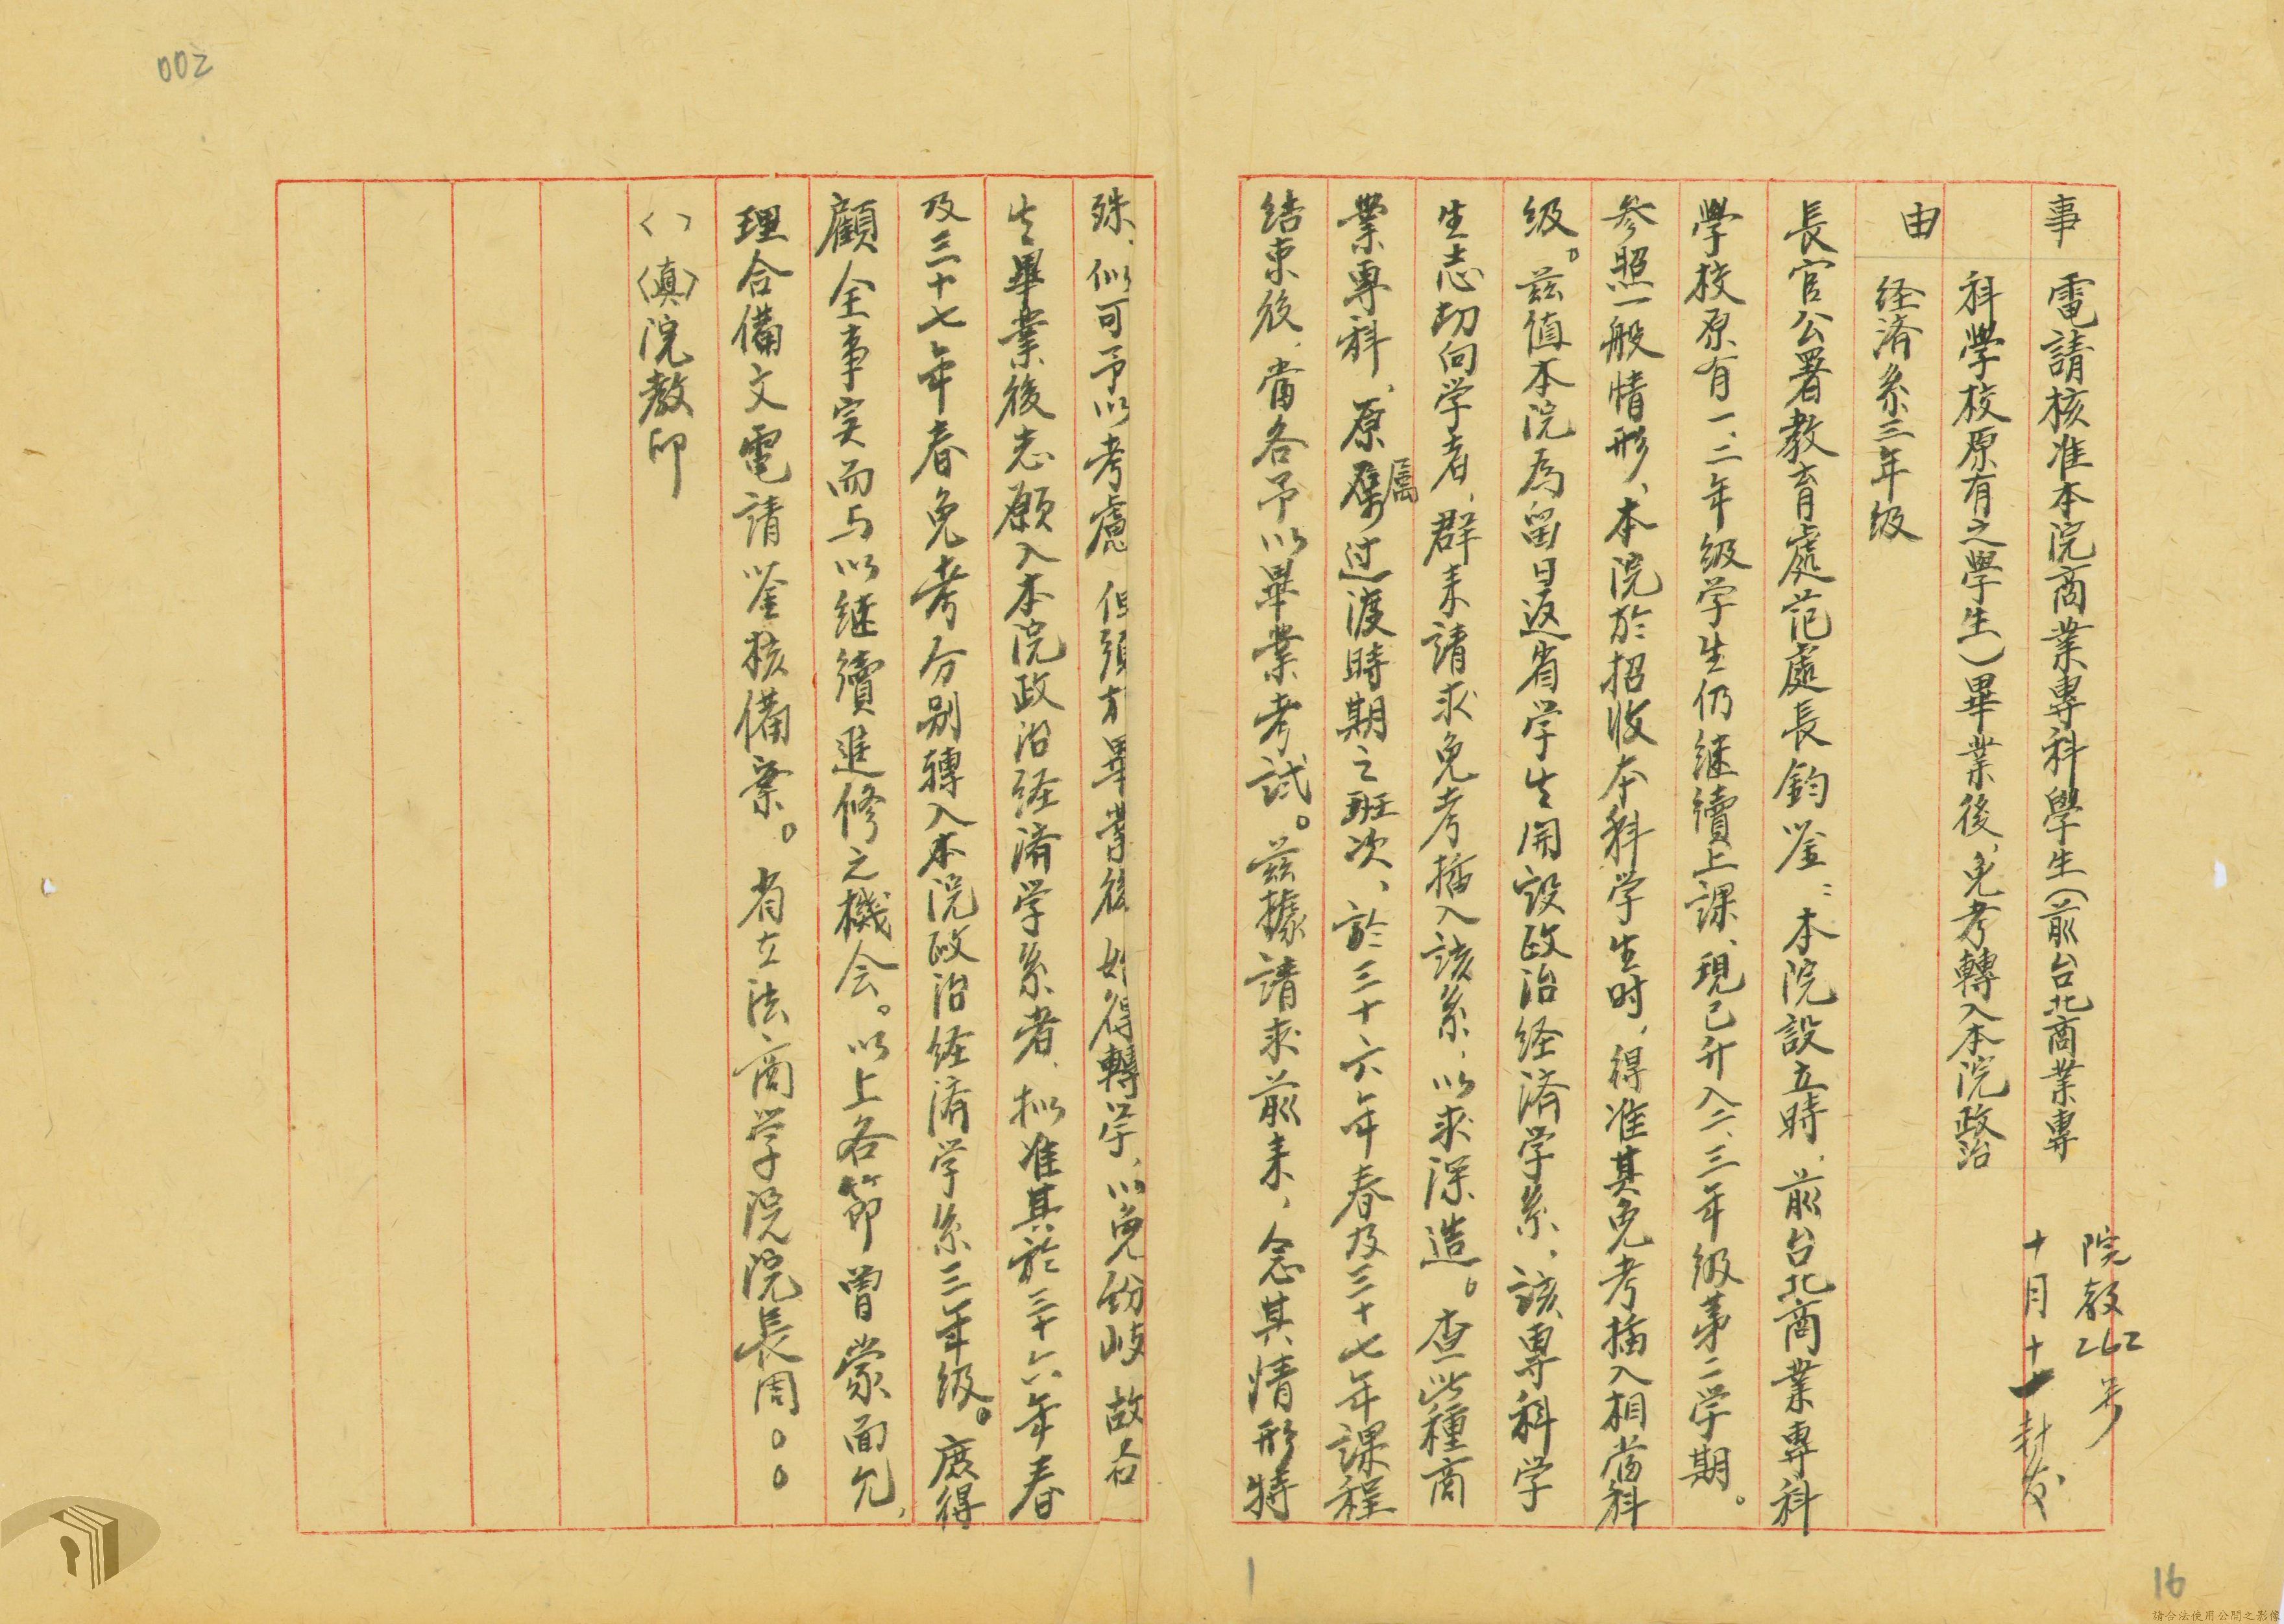 002
院教262号
十月十一封发
事
由
電請核准本院商業專科學生(前台北商業專
科學校原有之學生)畢業後、免考轉入本院政治
経済系三年级
長官公署教育處范處長鈞鉴：本院設立時，前台北商業專科
學校原有一、二年级学生仍継續上課、現已升入二、三年级第二学期。
参照一般情形、本院於招收本科学生时，得准其免考插入相当科
级。兹值本院為留日返省学生開設政治経済学系、該専科学
生志切向学者，群来請求免考插入該系，以求深造。查此種商
業専科、原屬过渡時期之班次、於三十六年春及三十七年課程
結束後、當各予以畢業考試。兹據請求前来，念其情形特
殊、似可予以考慮 但須于畢業後始得轉学，以免纷歧 故各
生畢業後志願入本院政治経済学系者、拟准其於三十六年春
及三十七年春免考分别轉入本院政治経済学系三年级。庶得
顧全事实而与以継續進修之機会。以上各節曾蒙面允，
理合備文電請鉴核備案。省立法、商学院院長周○○
〈〉〈真〉院教印
1
16
請合法使用公開之影像